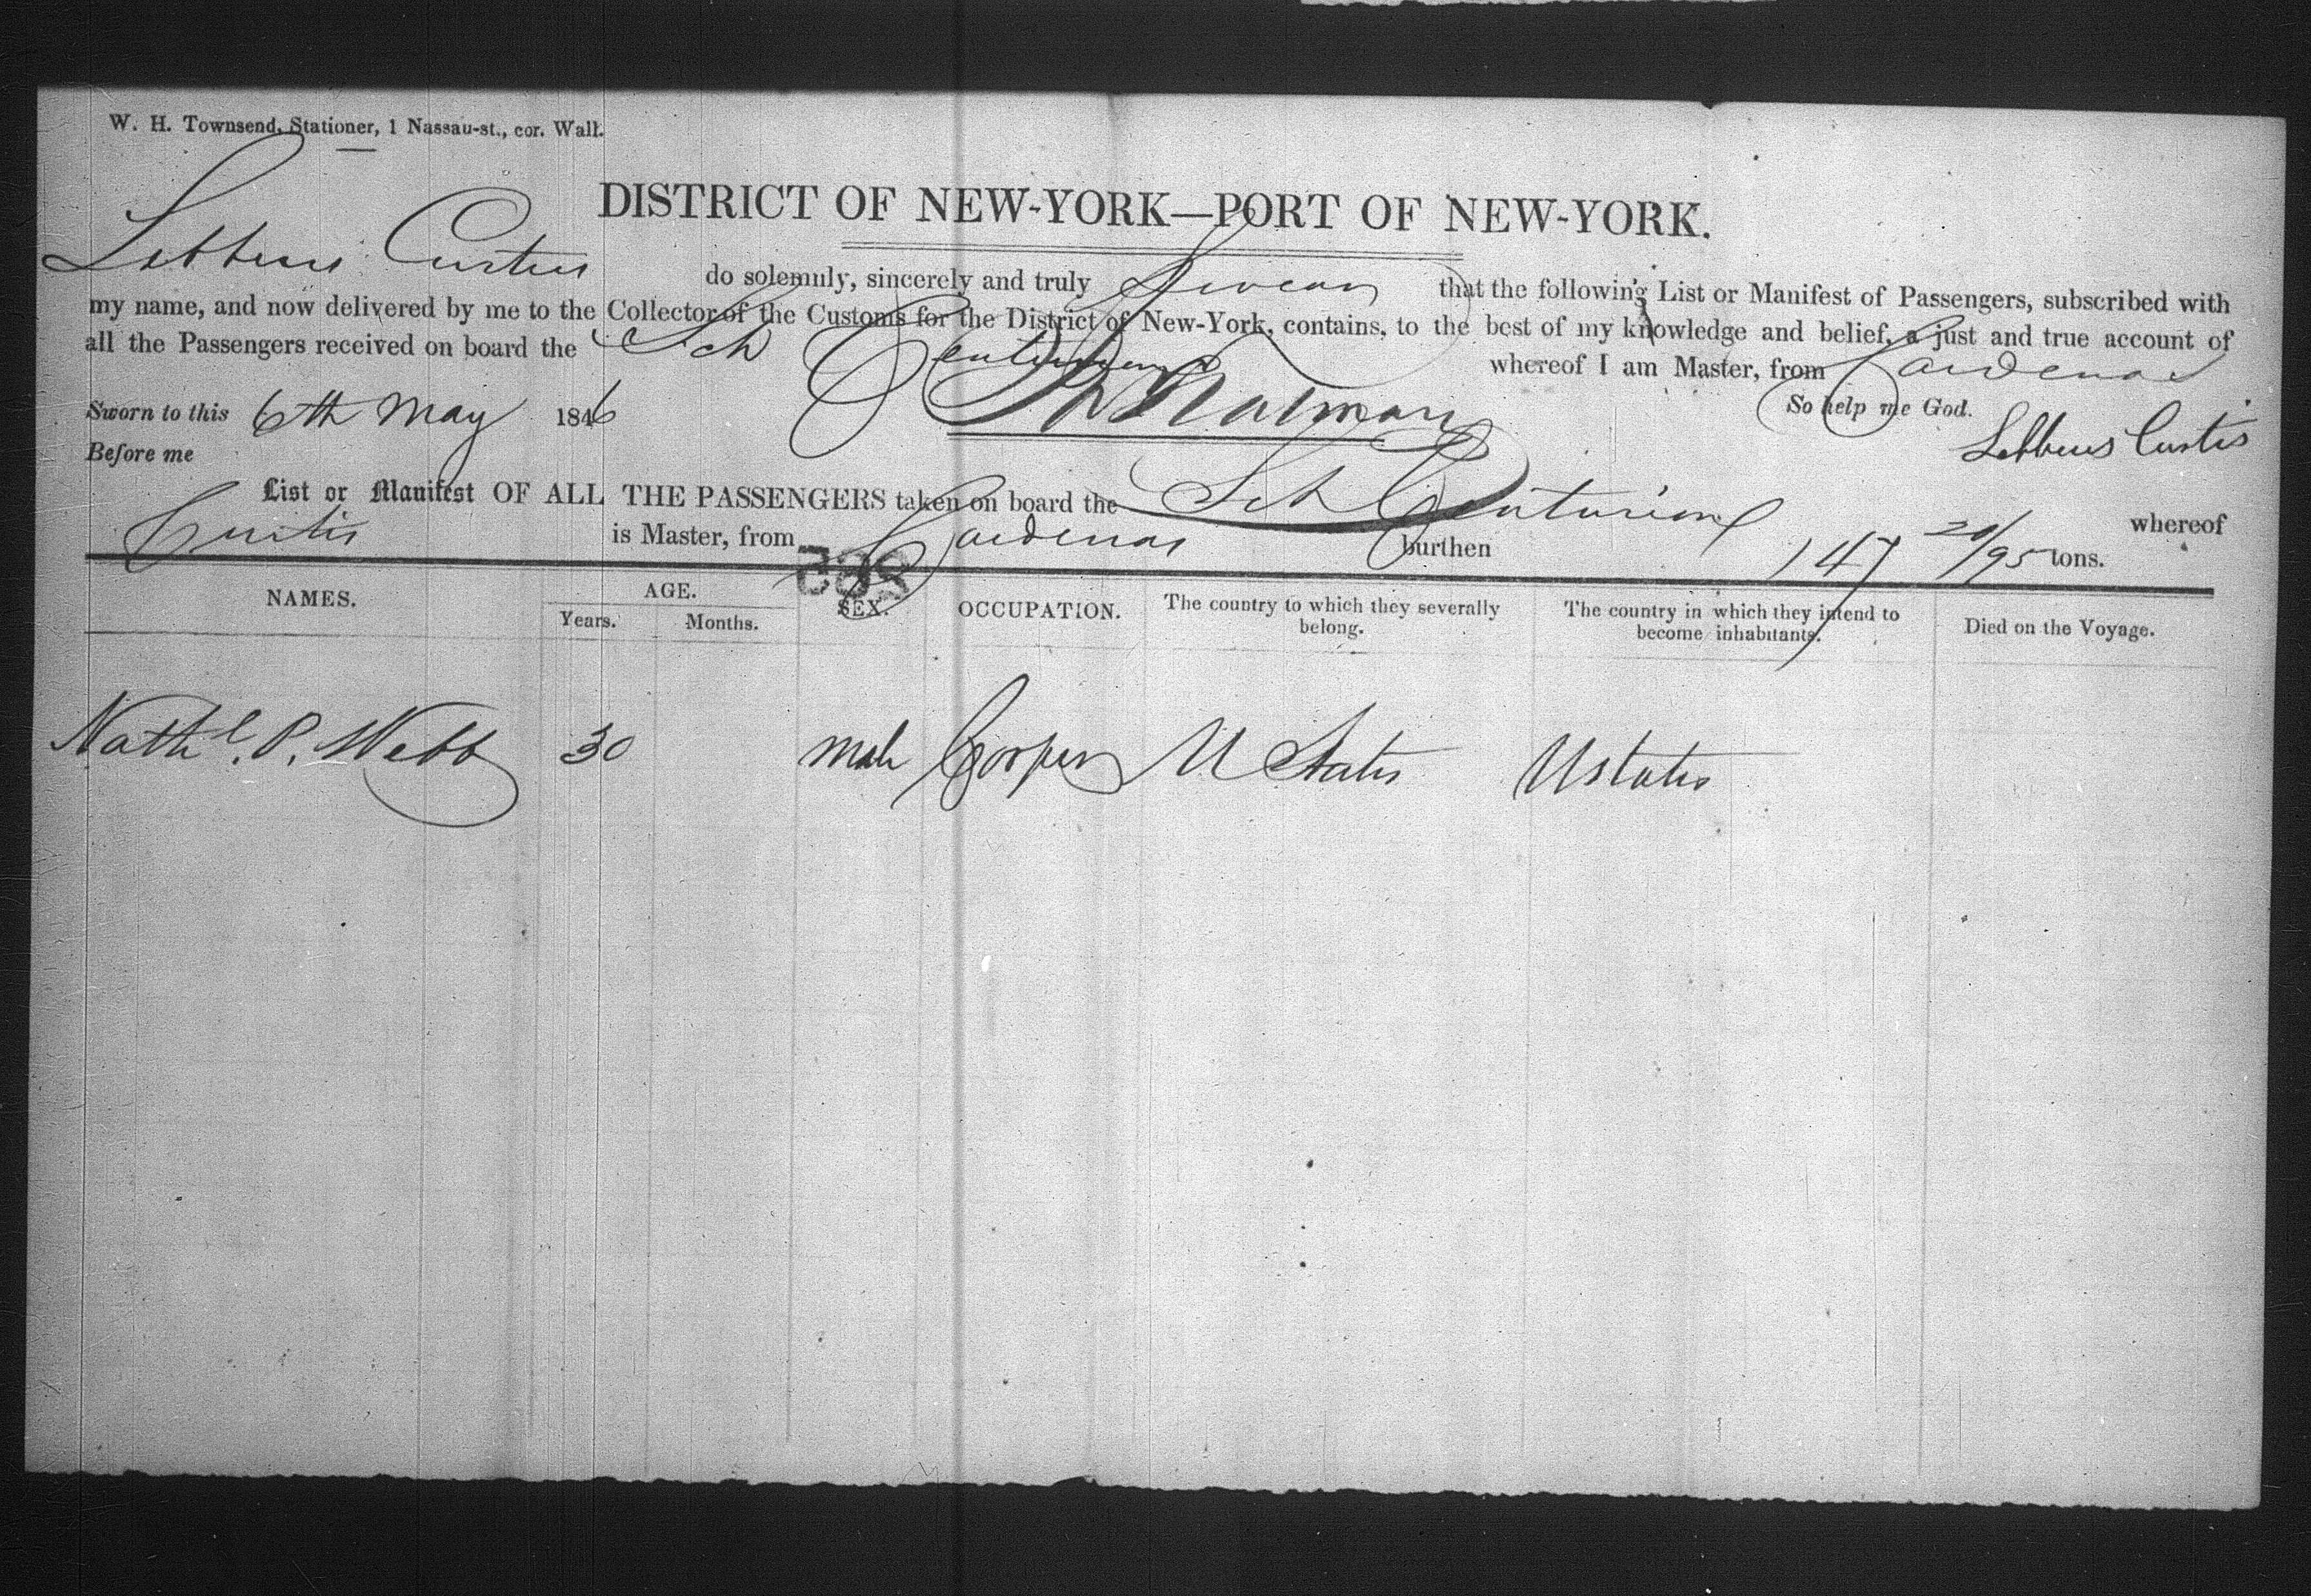 W. H. Townsend, Stationer, 1 Nassau-st., cor. Wall.
DISTRICT OF NEW-YORK—PORT OF NEW-YORK.
Lebbeus Curtis do solemnly, sincerely and truly Swear that the following List or Manifest of Passengers, subscribed with
my name, and now delivered by me to the Collector of the Customs for the District of New-York, contains, to the best of my knowledge and belief, a just and true account of
all the Passengers received on board the Sch Centurion whereof I am Master, from Cardenas
Sworn to this 6th May 1846 So help me God.
Before me Lebbeus Curtis
List or Manifest OF ALL THE PASSENGERS taken on board the Sch Centurion whereof
Curtis is Master, from Cardenas burthen 147 20/95 tons.
NAMES. AGE. SEX. OCCUPATION. The country to which they severally belong. The country in which they intend to become inhabitants. Died on the Voyage.
Years. Months.
Nathl. P. Webb 30 male Cooper U States U States